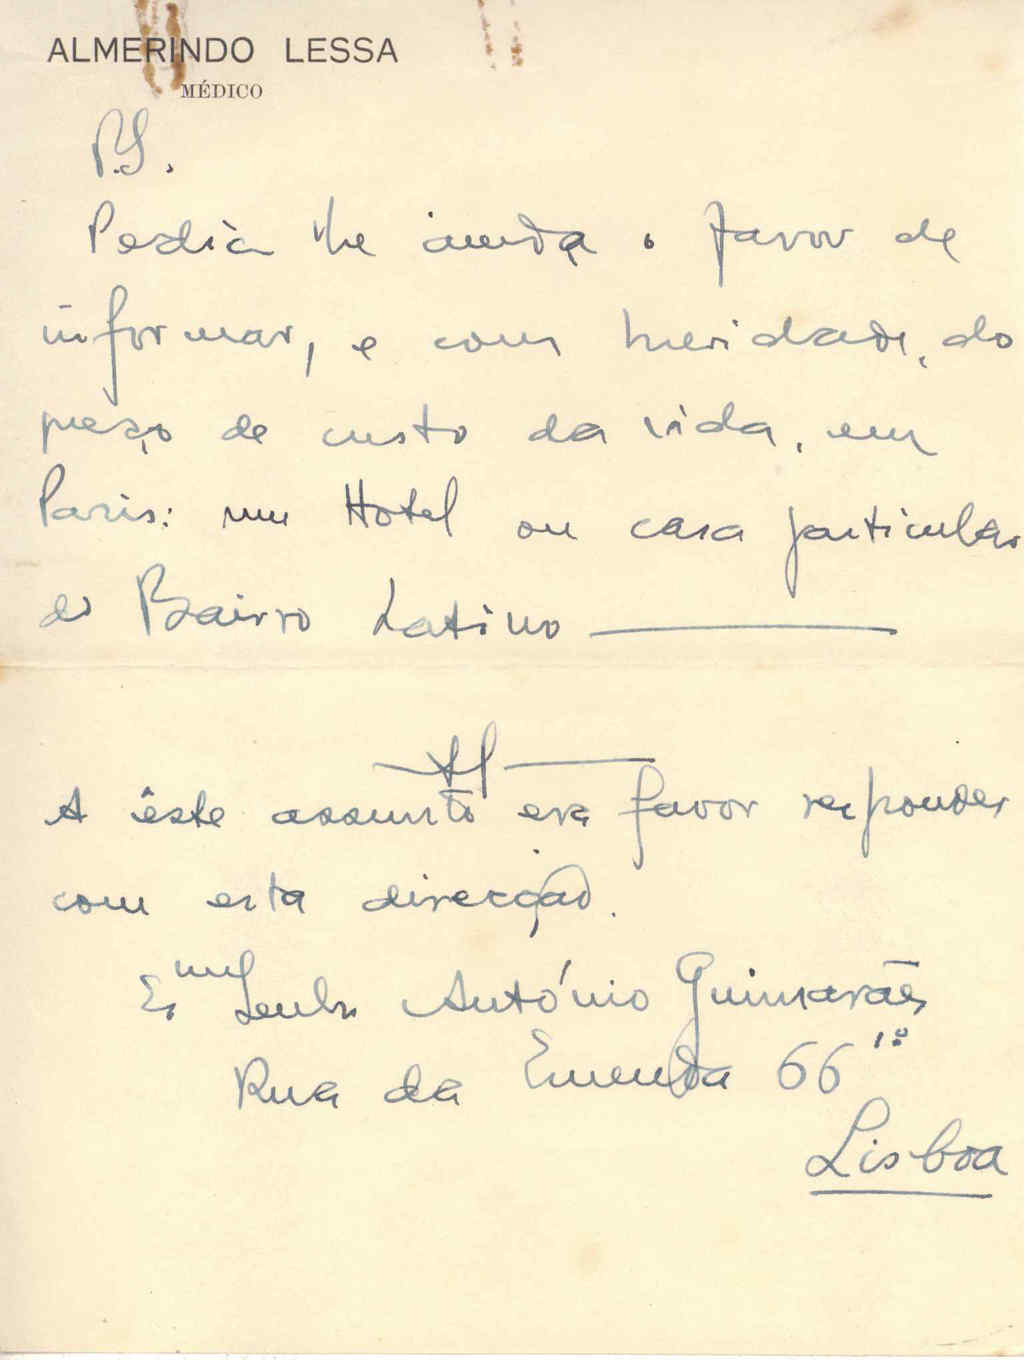 ALMERINDO LESSA
MÉDICO
P.S.
Pedia lhe ainda o favor de
informar, e com brevidade, do
preço de custo da vida, em
Paris: num Hotel ou casa particular
do Bairro Latino
A êste assunto era favor responder
com esta direcção.
Exmª Senhr António Guimarães
Rua da Emenda 66 1º
Lisboa